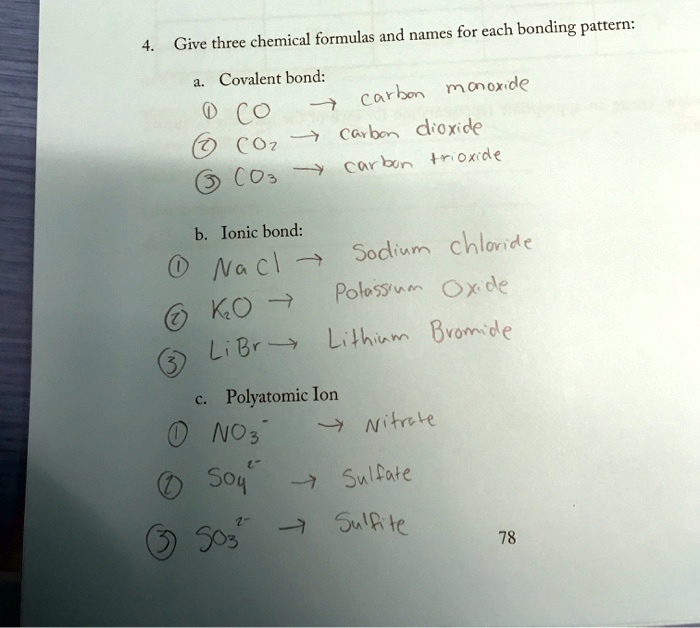 4. Give three chemical formulas and names for each bonding pattern:
a. Covalent bond:
① CO → carbon monoxide
② CO₂ → carbon dioxide
③ CO₃ → carbon trioxide
b. Ionic bond:
① NaCl → Sodium chloride
② K₂O → Potassium Oxide
③ LiBr → Lithium Bromide
c. Polyatomic Ion
① NO₃⁻ → Nitrate
② SO₄²⁻ → Sulfate
③ SO₃²⁻ → Sulfite
78